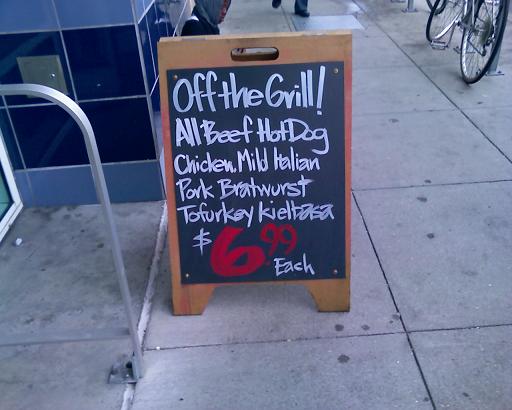 Off the Grill!
All Beef Hot Dog
Chicken, Mild Italian
Pork Bratwurst
Tofurkey kielbasa
$6.99
Each